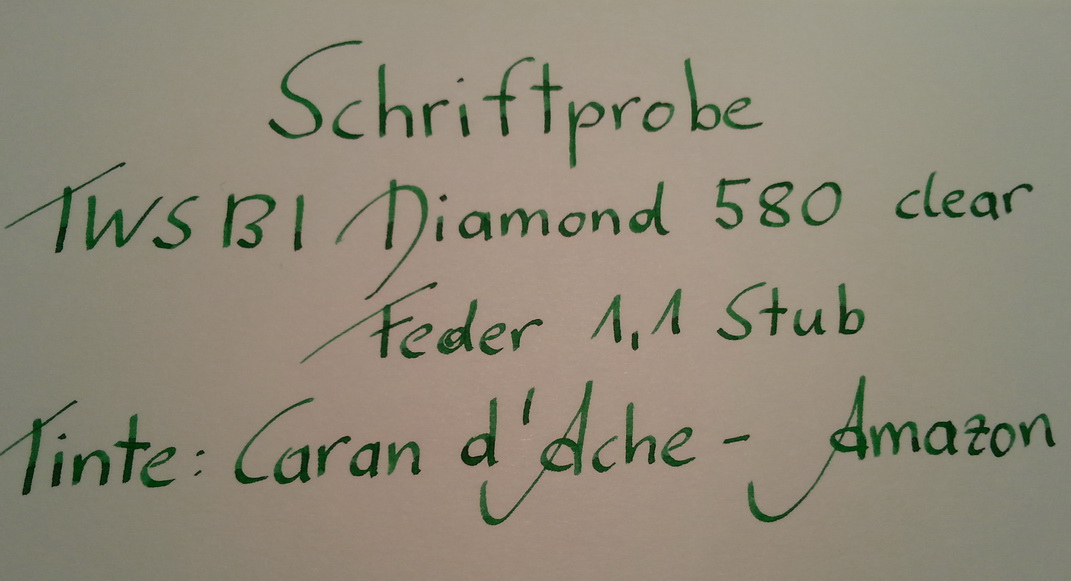 Schriftprobe
TWSBI Diamond 580 clear
Feder 1,1 Stub
Tinte: Caran d'Ache - Amazon